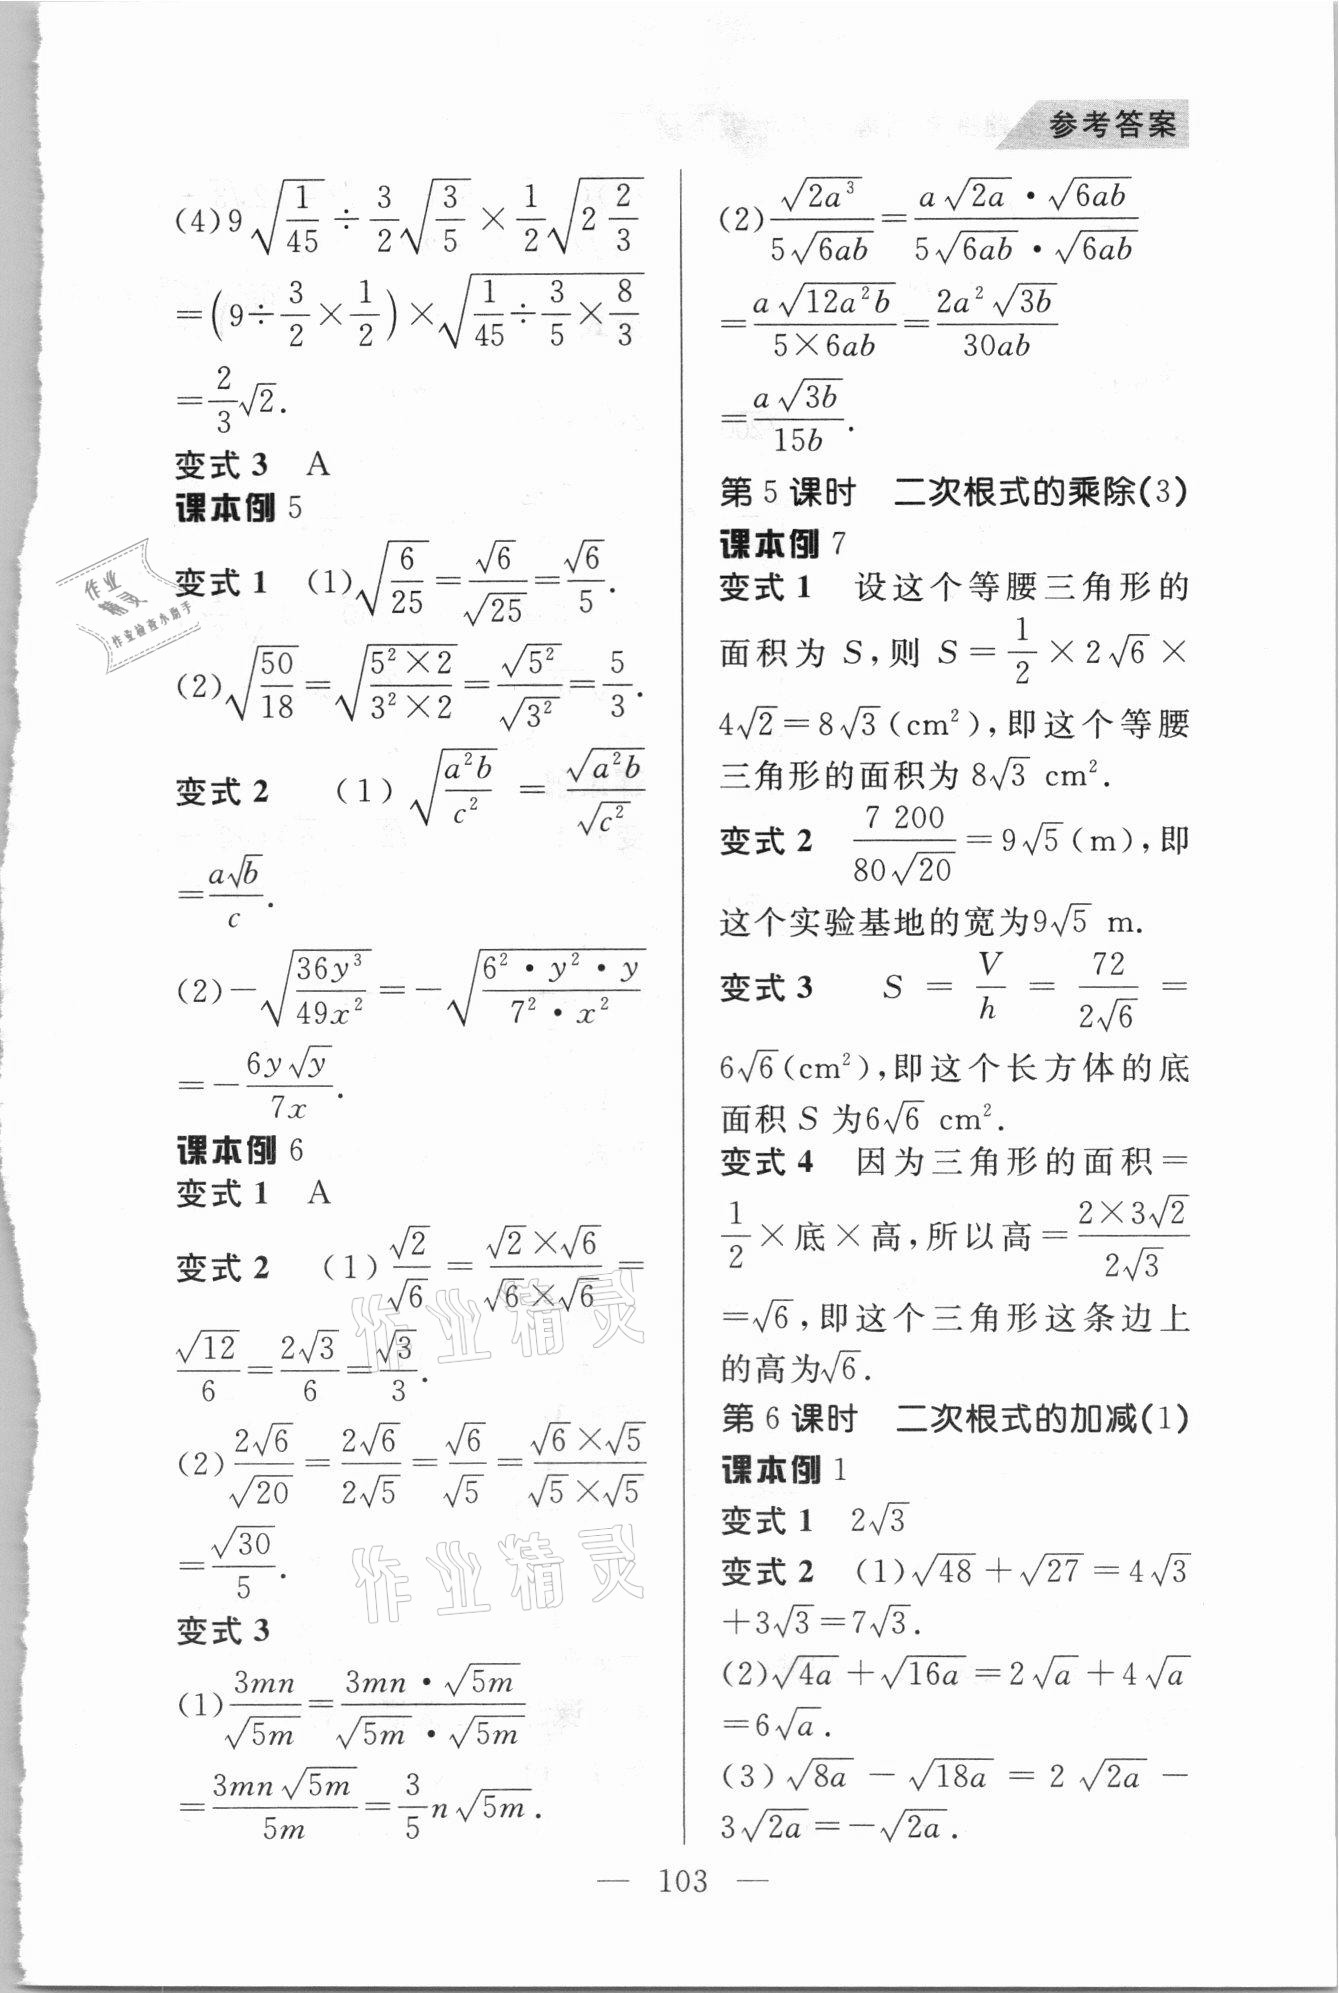 参考答案
(4)9√(1/45)÷3/2√(3/5)×1/2√(2 2/3)
=(9÷3/2×1/2)×√(1/45÷3/5×8/3)
=2/3√2.
变式3 A
课本例5
变式1 (1)√(6/25)=√6/√25=√6/5.
(2)√(50/18)=√((5²×2)/(3²×2))=√5²/√3²=5/3.
变式2 (1)√(a²b/c²)=√(a²b)/√c²
=a√b/c.
(2)-√(36y³/49x²)=-√((6²·y²·y)/(7²·x²))
=-6y√y/7x.
课本例6
变式1 A
变式2 (1)√2/√6=(√2×√6)/(√6×√6)=
√12/6=2√3/6=√3/3.
(2)2√6/√20=2√6/2√5=√6/√5=(√6×√5)/(√5×√5)
=√30/5.
变式3
(1)3mn/√(5m)=(3mn·√(5m))/(√(5m)·√(5m))
=3mn√(5m)/5m=3/5 n√(5m).
(2)√(2a³)/(5√(6ab))=(a√(2a)·√(6ab))/(5√(6ab)·√(6ab))
=a√(12a²b)/(5×6ab)=2a²√(3b)/30ab
=a√(3b)/15b.
第5课时 二次根式的乘除(3)
课本例7
变式1 设这个等腰三角形的
面积为S,则S=1/2×2√6×
4√2=8√3(cm²),即这个等腰
三角形的面积为8√3 cm².
变式2 7 200/80√20=9√5(m),即
这个实验基地的宽为9√5 m.
变式3 S=V/h=72/2√6=
6√6(cm²),即这个长方体的底
面积S为6√6 cm².
变式4 因为三角形的面积=
1/2×底×高,所以高=(2×3√2)/(2√3)
=√6,即这个三角形这条边上
的高为√6.
第6课时 二次根式的加减(1)
课本例1
变式1 2√3
变式2 (1)√48+√27=4√3
+3√3=7√3.
(2)√(4a)+√(16a)=2√a+4√a
=6√a.
(3)√(8a)-√(18a)=2√(2a)-
3√(2a)=-√(2a).
— 103 —
作业
精灵
作业检查小助手
作业精灵
作业精灵